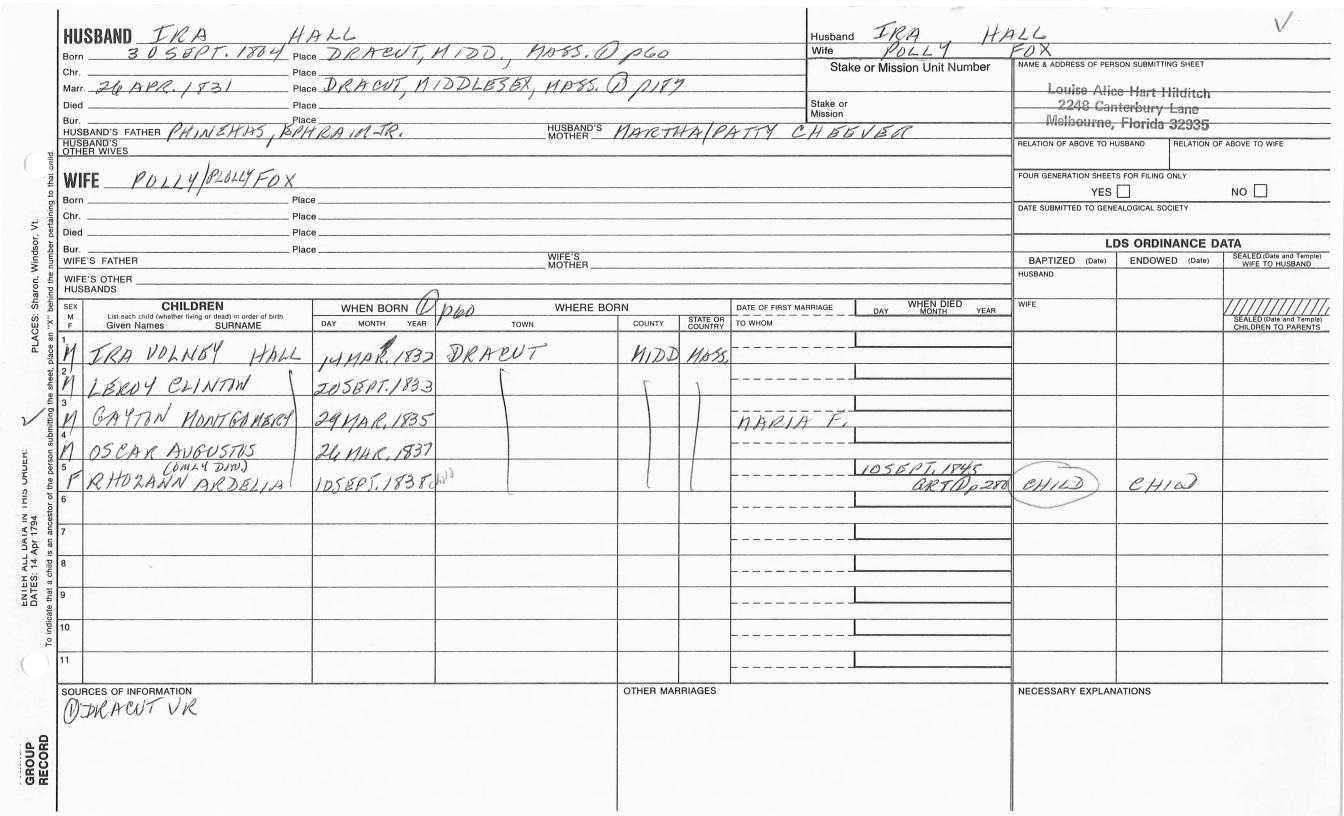 HUSBAND IRA HALL
Born 30 SEPT. 1804 Place DRACUT, MIDD., MASS. ① p60
Chr. Place
Marr. 26 APR. 1831 Place DRACUT, MIDDLESEX, MASS. ① p187
Died Place
Bur. Place
HUSBAND'S FATHER PHINEHAS, EPHRAIM JR. HUSBAND'S MOTHER MARTHA/PATTY CHEEVER
HUSBAND'S OTHER WIVES
Husband IRA HALL
Wife POLLY FOX
Stake or Mission Unit Number
Stake or Mission
NAME & ADDRESS OF PERSON SUBMITTING SHEET
Louise Alice Hart Hilditch
2248 Canterbury Lane
Melbourne, Florida 32935
RELATION OF ABOVE TO HUSBAND RELATION OF ABOVE TO WIFE
FOUR GENERATION SHEETS FOR FILING ONLY
YES NO
DATE SUBMITTED TO GENEALOGICAL SOCIETY
WIFE POLLY/PLOLLY FOX
Born Place
Chr. Place
Died Place
Bur. Place
WIFE'S FATHER WIFE'S MOTHER
WIFE'S OTHER HUSBANDS
LDS ORDINANCE DATA
BAPTIZED (Date) ENDOWED (Date) SEALED (Date and Temple) WIFE TO HUSBAND
HUSBAND
WIFE
SEALED (Date and Temple) CHILDREN TO PARENTS
SEX M F
CHILDREN
List each child (whether living or dead) in order of birth
Given Names SURNAME
WHEN BORN ① p60
DAY MONTH YEAR
WHERE BORN
TOWN COUNTY STATE OR COUNTRY
DATE OF FIRST MARRIAGE
TO WHOM
WHEN DIED
DAY MONTH YEAR
1 M IRA VOLNEY HALL 14 MAR. 1832 DRACUT MIDD MASS.
2 M LEROY CLINTON 20 SEPT. 1833
3 M GAYTON MONTGOMERY 29 MAR. 1835 MARIA F.
4 M OSCAR AUGUSTUS 26 MAR. 1837
5 F RHOZANN ARDELIA 10 SEPT. 1838 child 10 SEPT. 1845
GRT ① p280 CHILD CHILD
6
7
8
9
10
11
SOURCES OF INFORMATION
① DRACUT VR
OTHER MARRIAGES
NECESSARY EXPLANATIONS
ENTER ALL DATA IN THIS ORDER:
DATES: 14 Apr 1794 PLACES: Sharon, Windsor, Vt.
To indicate that a child is an ancestor of the person submitting the sheet, place an "X" behind the number pertaining to that child.
GROUP RECORD